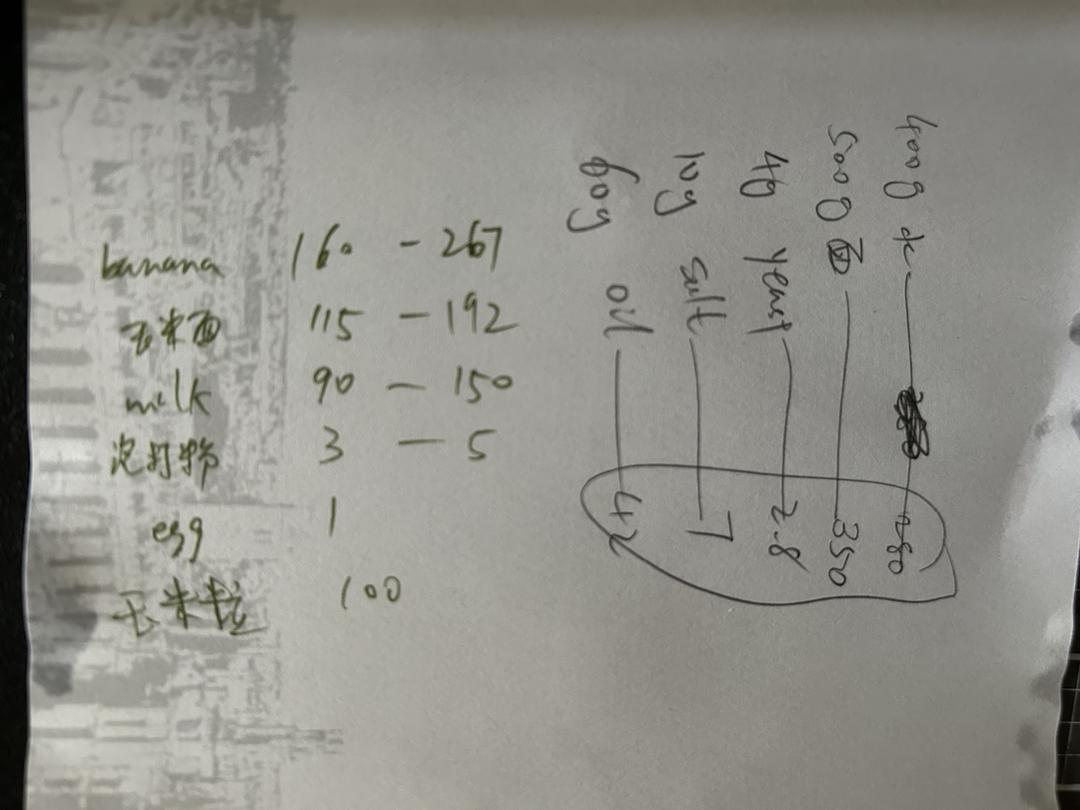 banana 160 - 267
玉米面 115 - 192
milk 90 - 150
泡打粉 3 - 5
egg 1
玉米粒 100
400g 水 280
500g 面 350
4g yeast 2.8
10g salt 7
60g oil 42